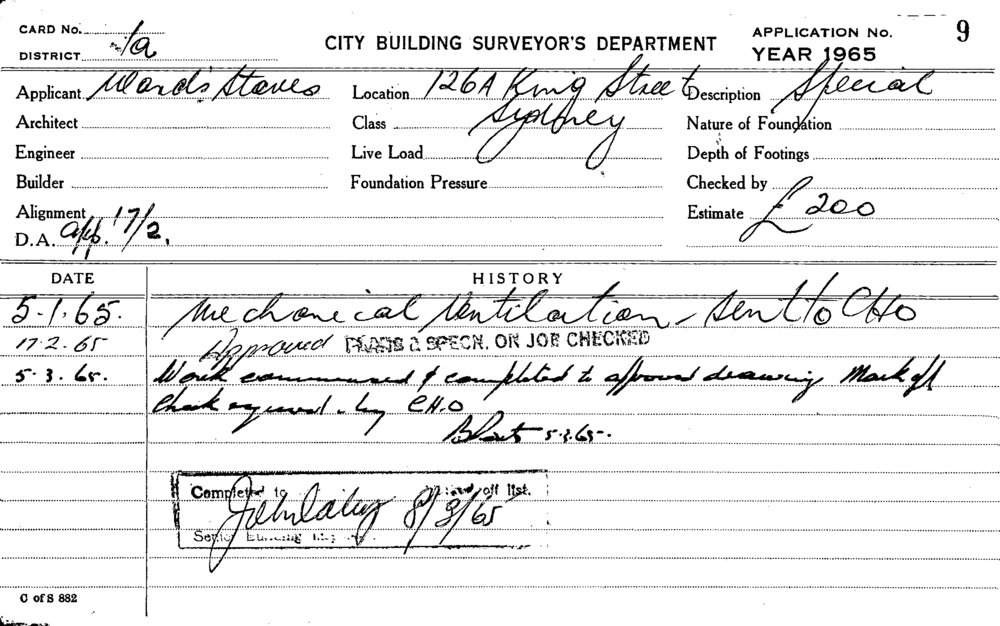 CARD No.
DISTRICT 1/a
CITY BUILDING SURVEYOR'S DEPARTMENT
APPLICATION No. 9
YEAR 1965
Applicant Ward's Stores Location 126A King Street Description Special
Architect Class Sydney Nature of Foundation
Engineer Live Load Depth of Footings
Builder Foundation Pressure Checked by
Alignment Estimate £200
D.A. app. 17/2.
DATE HISTORY
5.1.65. Mechanical Ventilation - Sent to CHO
17.2.65 Approved PLANS & SPECN. ON JOB CHECKED
5.3.65. Work commenced & completed to approved drawing Mark off
Check required by C.H.O
5.3.65.
Completed to off list.
8/3/65
Senior Building
C of S 882